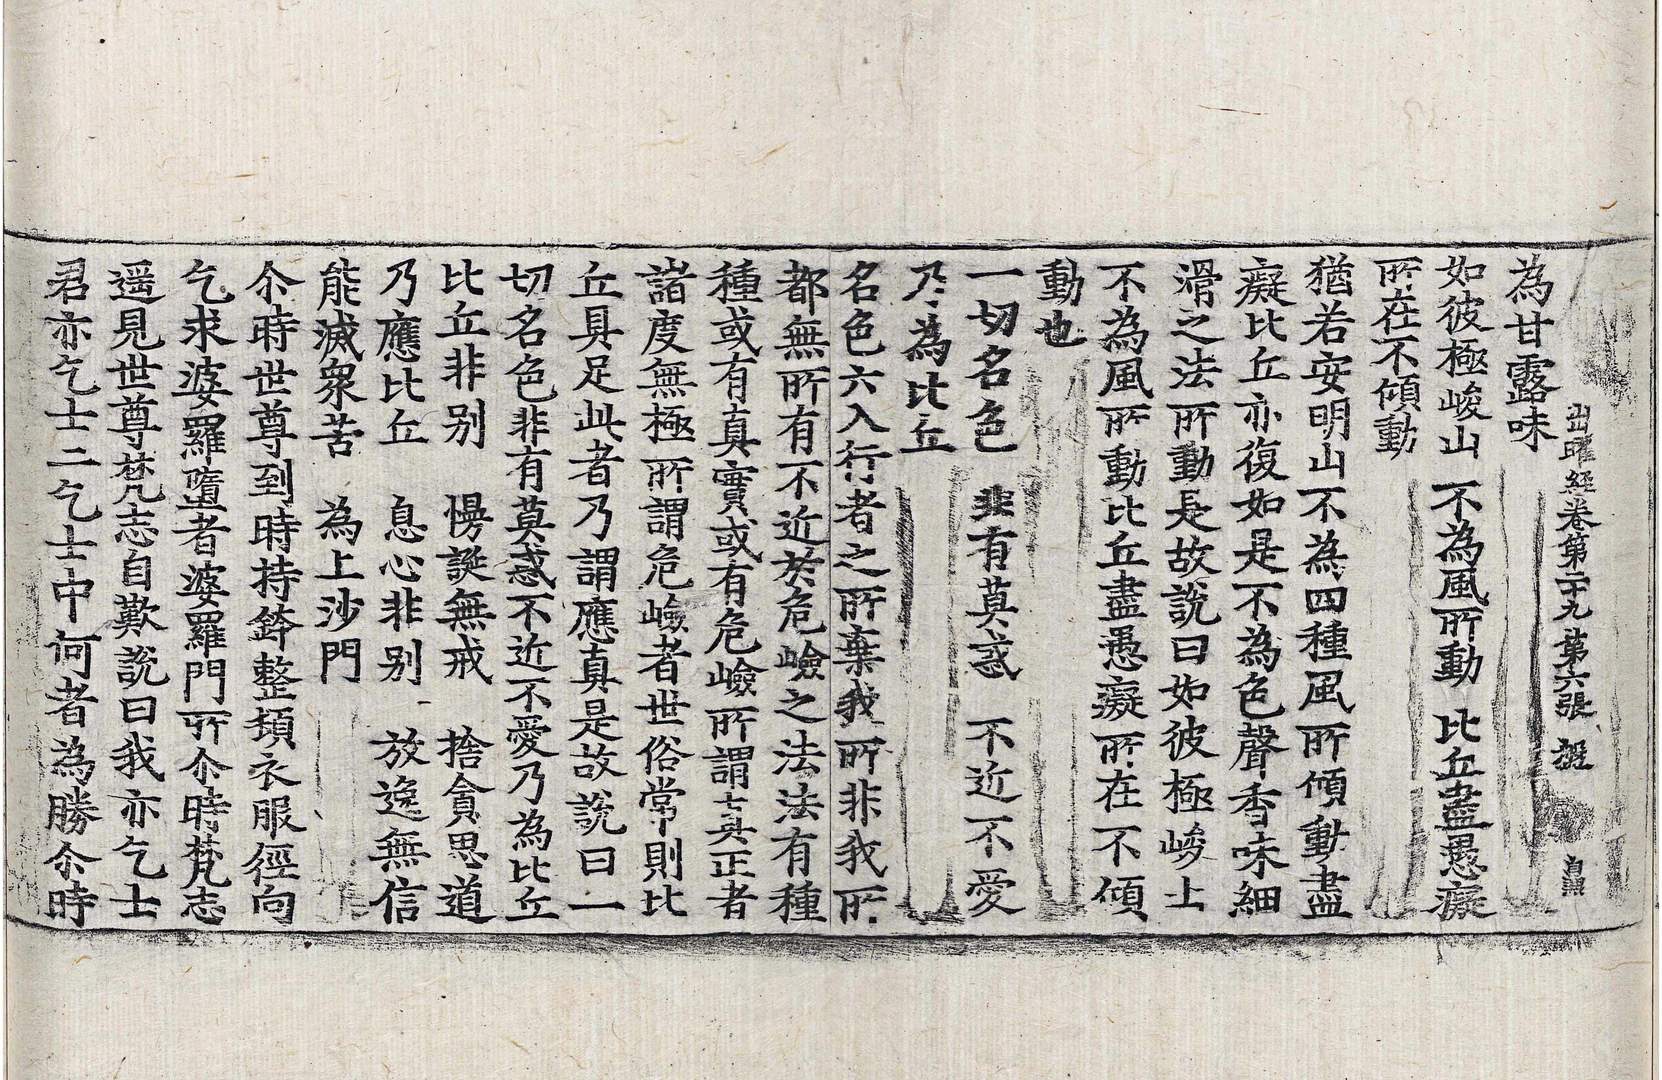 出曜經卷第二十九 第六張 槃
為甘露味
如彼極峻山 不為風所動 比丘盡愚癡
所在不傾動
猶若安明山不為四種風所傾動盡愚
癡比丘亦復如是不為色聲香味細
滑之法所動是故說曰如彼極峻山
不為風所動比丘盡愚癡所在不傾
動也
一切名色 非有莫惑 不近不愛
乃為比丘
名色六入行者之所棄我所非我所
都無所有不近於危嶮之法法有種
種或有真實或有危嶮所謂真正者
諸度無極所謂危嶮者世俗常則比
丘具足此者乃謂應真是故說曰一
切名色非有莫惑不近不愛乃為比丘
比丘非別 慢誕無戒 捨貪思道
乃應比丘 息心非別 放逸無信
能滅衆苦 為上沙門
尒時世尊到時持鉢整頓衣服徑向
乞求婆羅墮者婆羅門所尒時梵志
遥見世尊梵志自歎說曰我亦乞士
君亦乞士二乞士中何者為勝尒時